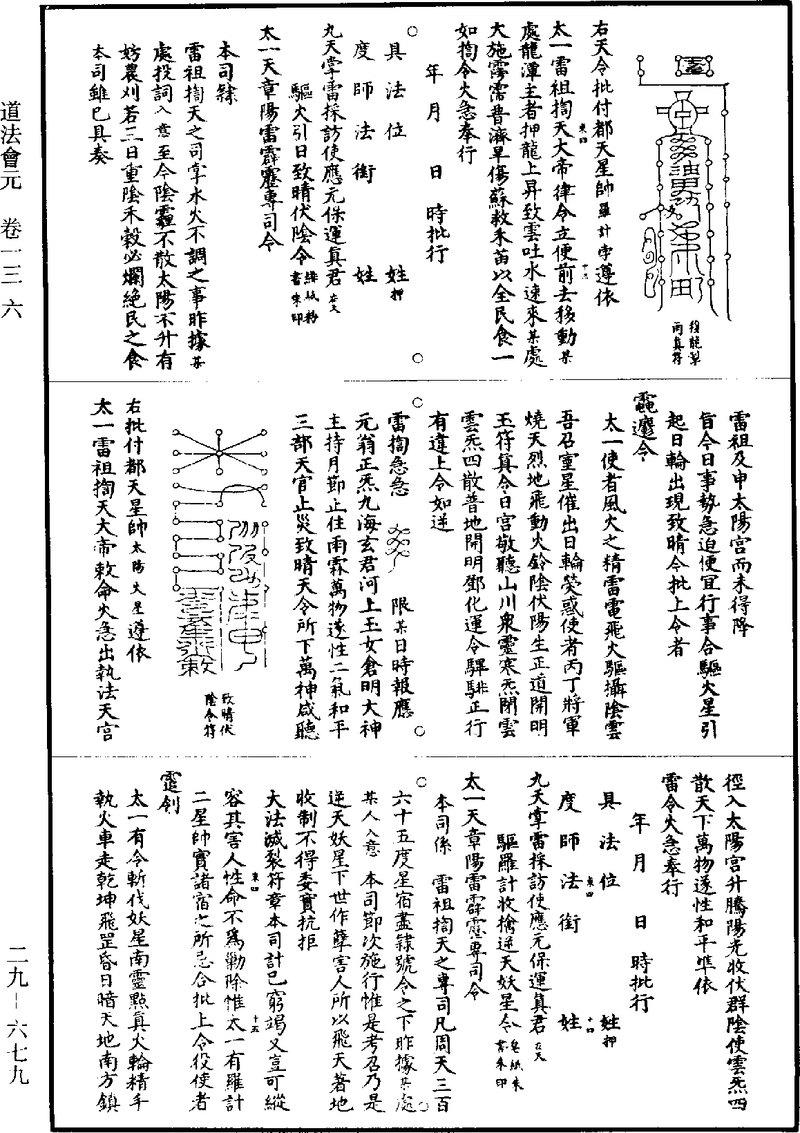 道法會元　卷一三　六
役龍掣
雨真符
右天令批付都天星帥羅計孛遵依
太一雷祖搯天大帝律令立便前去移動某
處龍潭主者押龍上昇致雲吐水速來某處
大施霶霈普濟旱傷蘇救禾苗以全民食一
如搯令火急奉行
年　月　　日　時批行
具　法　位　　　　　姓押
度　師　法　銜　　　姓
九天掌雷採訪使應元保運真君在天
驅火引日致晴伏陰令緋紙粉書朱印
太一天章陽雷霹靂專司令
本司隸
雷祖搯天之司掌水火不調之事昨據某
處投詞入意至今陰霾不散太陽不升有
妨農刈若三日重陰禾穀必爛絕民之食
本司雖已具奏
雷祖及申太陽宮而未得降
旨今日事勢急迫便宜行事合驅火星引
起日輪出現致晴今批上令者
太一使者風火之精雷電飛火驅攝陰雲
吾召壹星催出日輪熒惑使者丙丁將軍
燒天烈地飛動火鈴陰伏陽生正道開明
玉符真令日宮敬聽山川衆靈寒炁閉雲
雲炁四散普地開明鄧化運令騨騑正行
有違上令如逆
雷搯急急　限某日時報應
元翁正炁九海玄君河上玉女倉明大神
主持月節止住雨霖萬物遂性二氣和平
三部天官止災致晴天令所下萬神咸聽
致晴伏
陰令符
右批付都天星帥太陽火星遵依
太一雷祖搯天大帝敕命火急出執法天宮
徑入太陽宮升騰陽光收伏群陰使雲炁四
散天下萬物遂性和平準依
雷令火急奉行
年　月　　日　時批行
具　法　位　　　　　姓押
度　師　法　銜　　　姓
九天掌雷採訪使應元保運真君在天
驅羅計收擒逆天妖星令皂紙朱書朱印
太一天章陽雷霹靂專司令
本司係　雷祖搯天之專司凡周天三百
六十五度星宿盡隸號令之下昨據某處
某人入意　本司節次施行惟是考召乃是
逆天妖星下世作孽害人所以飛天著地
收制不得委實抗拒
大法滅裂符章本司計已窮竭又豈可縱
容其害人性命不爲勦除惟太一有羅計
二星帥實諸宿之所忌合批上令役使者
太一有令斬伐妖星南靈點真火輪精手
執火車走乾坤飛罡昏日暗天地南方鎮
二九—六七九